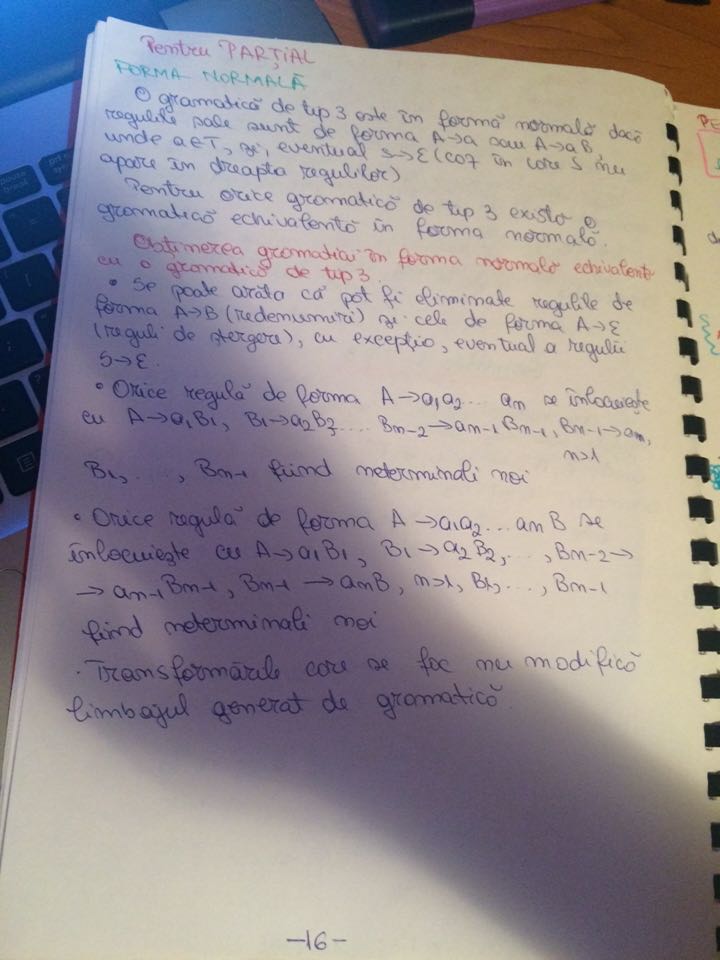 Pentru PARȚIAL
FORMA NORMALĂ
O gramatică de tip 3 este în formă normală dacă
regulile sale sunt de forma A→a sau A→aB
unde a∈T, și, eventual S→Ɛ (caz în care S nu
apare în dreapta regulilor)
Pentru orice gramatică de tip 3 există o
gramatică echivalentă în forma normală.
Obținerea gramaticii în forma normală echivalentă
cu o gramatică de tip 3.
• Se poate arăta că pot fi eliminate regulile de
forma A→B (redenumiri) și cele de forma A→Ɛ
(reguli de ștergere), cu excepția, eventual a regulii
S→Ɛ.
• Orice regulă de forma A→a₁a₂... an se înlocuiește
cu A→a₁B₁, B₁→a₂B₂.... Bn-2→an-1 Bn-1, Bn-1→an,
n>1
B₁, ..., Bn-1 fiind neterminali noi
• Orice regulă de forma A→a₁a₂...anB se
înlocuiește cu A→a₁B₁, B₁→a₂B₂, ..., Bn-2→
→an-1Bn-1, Bn-1→anB, n>1, B₁, ..., Bn-1
fiind neterminali noi
• Transformările care se fac nu modifică
limbajul generat de gramatică.
-16-